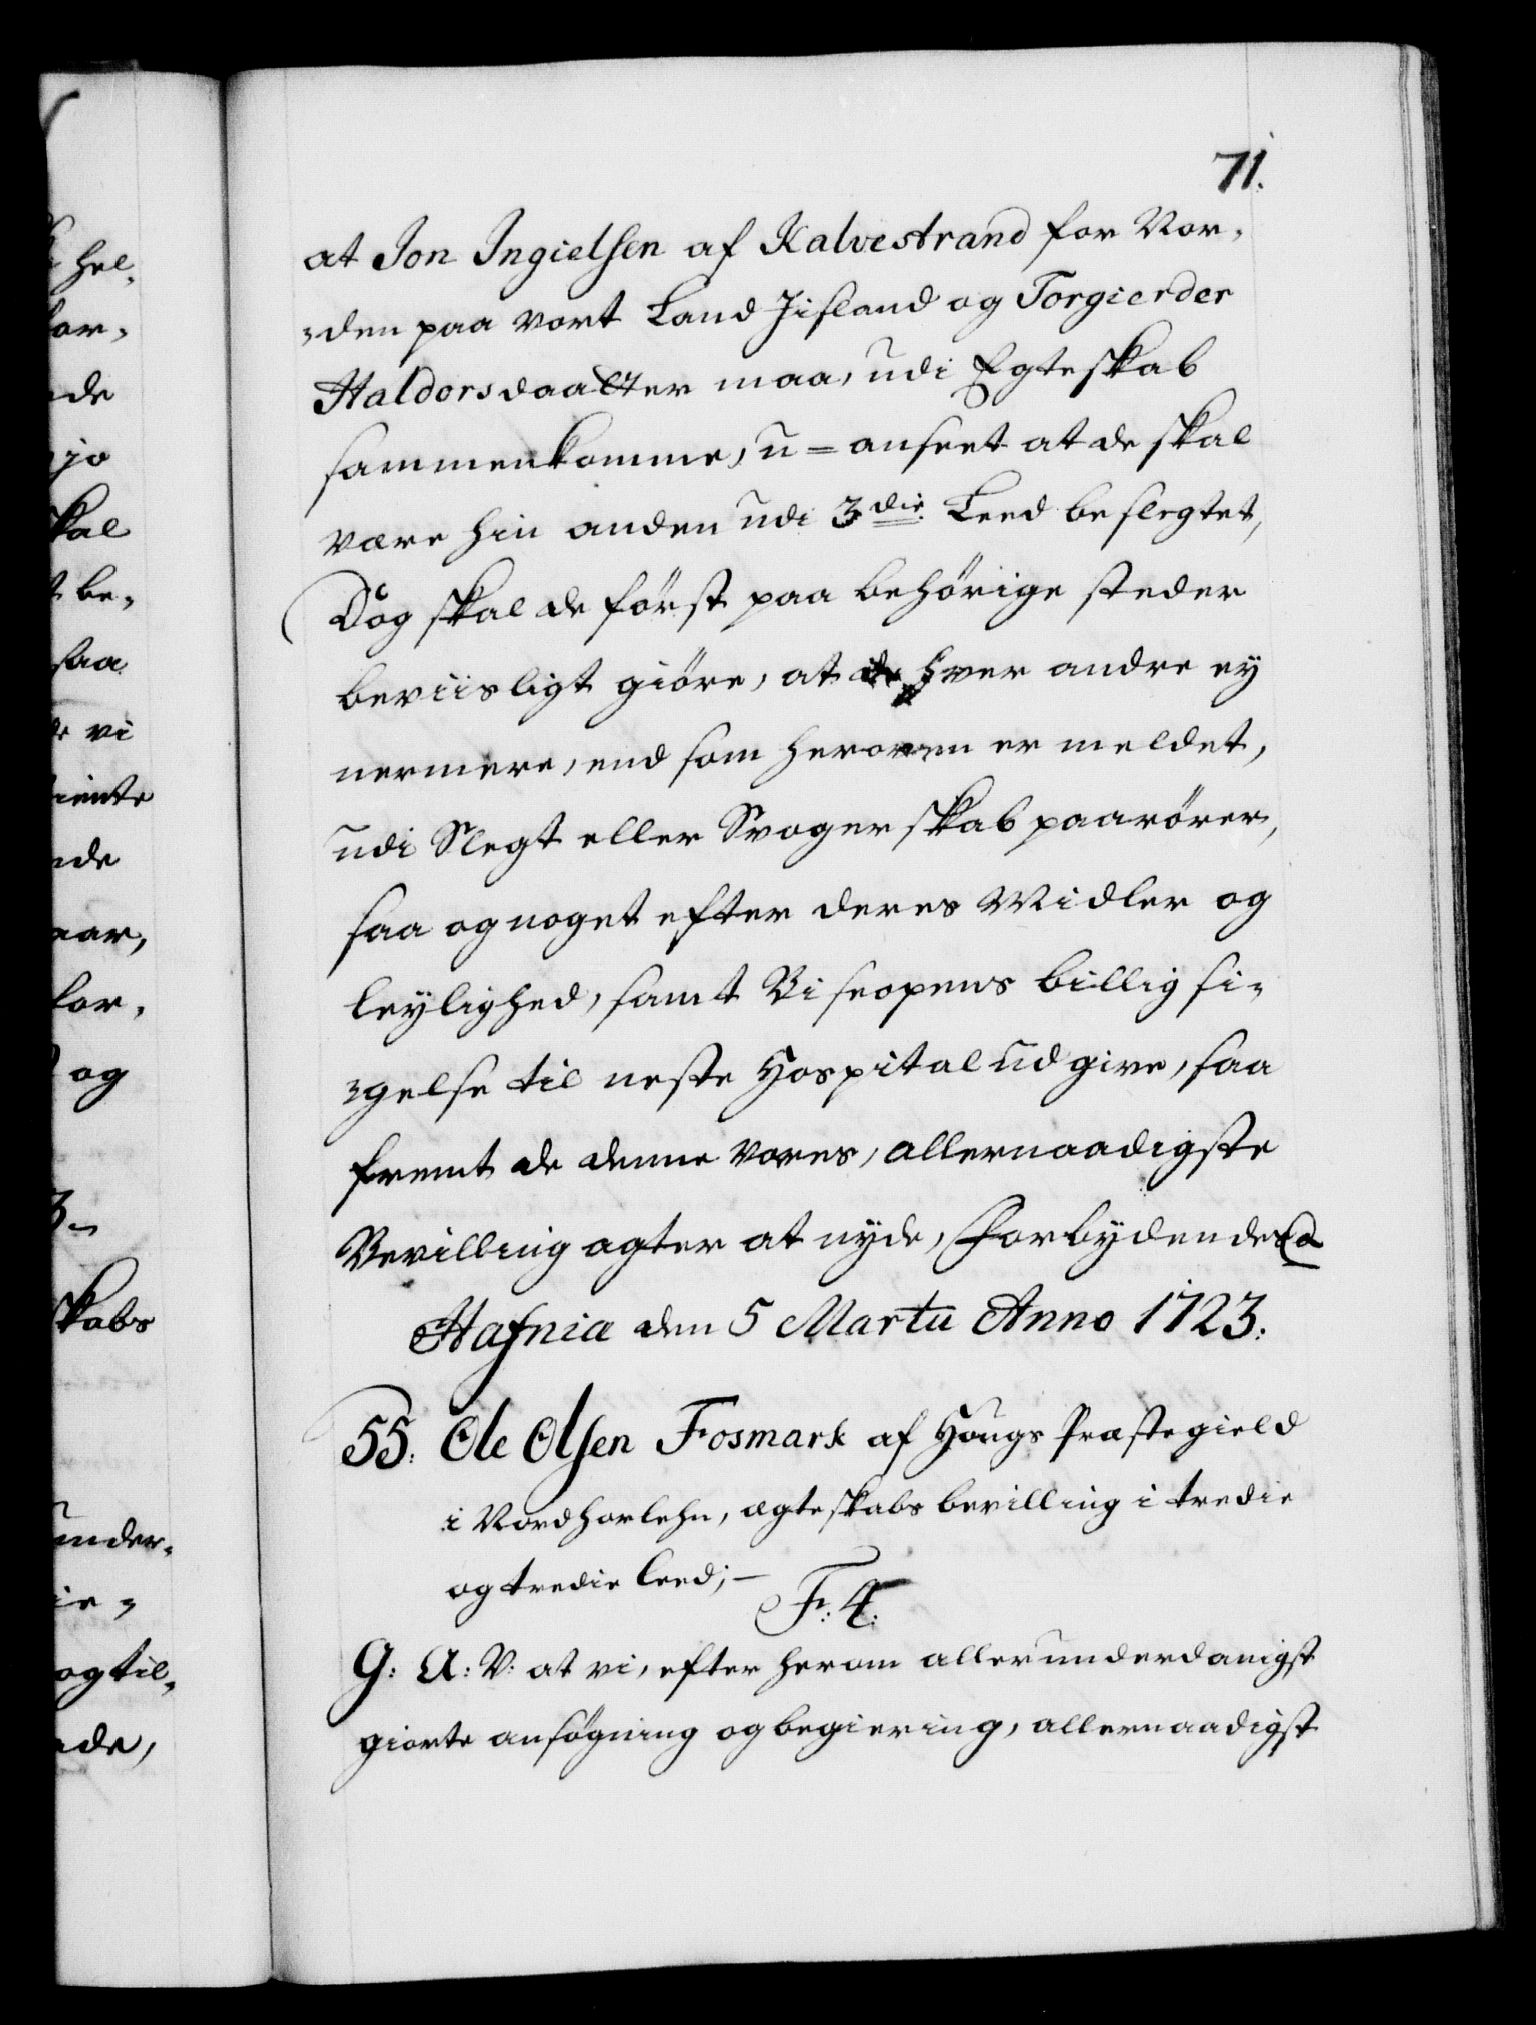 71.
at Jon Ingielsen af Kalvestrand for Nor-
-den paa vort Land Jisland og Torgierder
Haldorsdaatter maa, udi Egteskab
sammenkomme, u=anseet at de skal
være hin anden udi 3die Leed beslegtet,
Dog skal de först paa behörige steder
beviisligt giöre, at de hver andre ey
nermere, end som heroven er meldet,
udi Slegt eller Svogerskab paarörer,
saa og noget efter deres Midler og
leylighed, samt Biscopens billig si-
-gelse til neste Hospital udgive, saa
fremt de denne vores, allernaadigste
Bevilling agter at nyde, Forbydendes &
Hafnia den 5 Martii Anno 1723.
55. Ole Olsen Fosmark af Hougs Præstegield
i Nordhorlehn, ægteskabs bevilling i tredie
og tredie leed; –
Fr: 4:
G: A: V: at vi, efter herom allerunderdanigst
giorte ansögning og begiering, allernaadigst
hel-
for-
de
jo
skal
be-
saa
vi
de
for-
og
3-
skabs
under-
ie-
og til-
de,